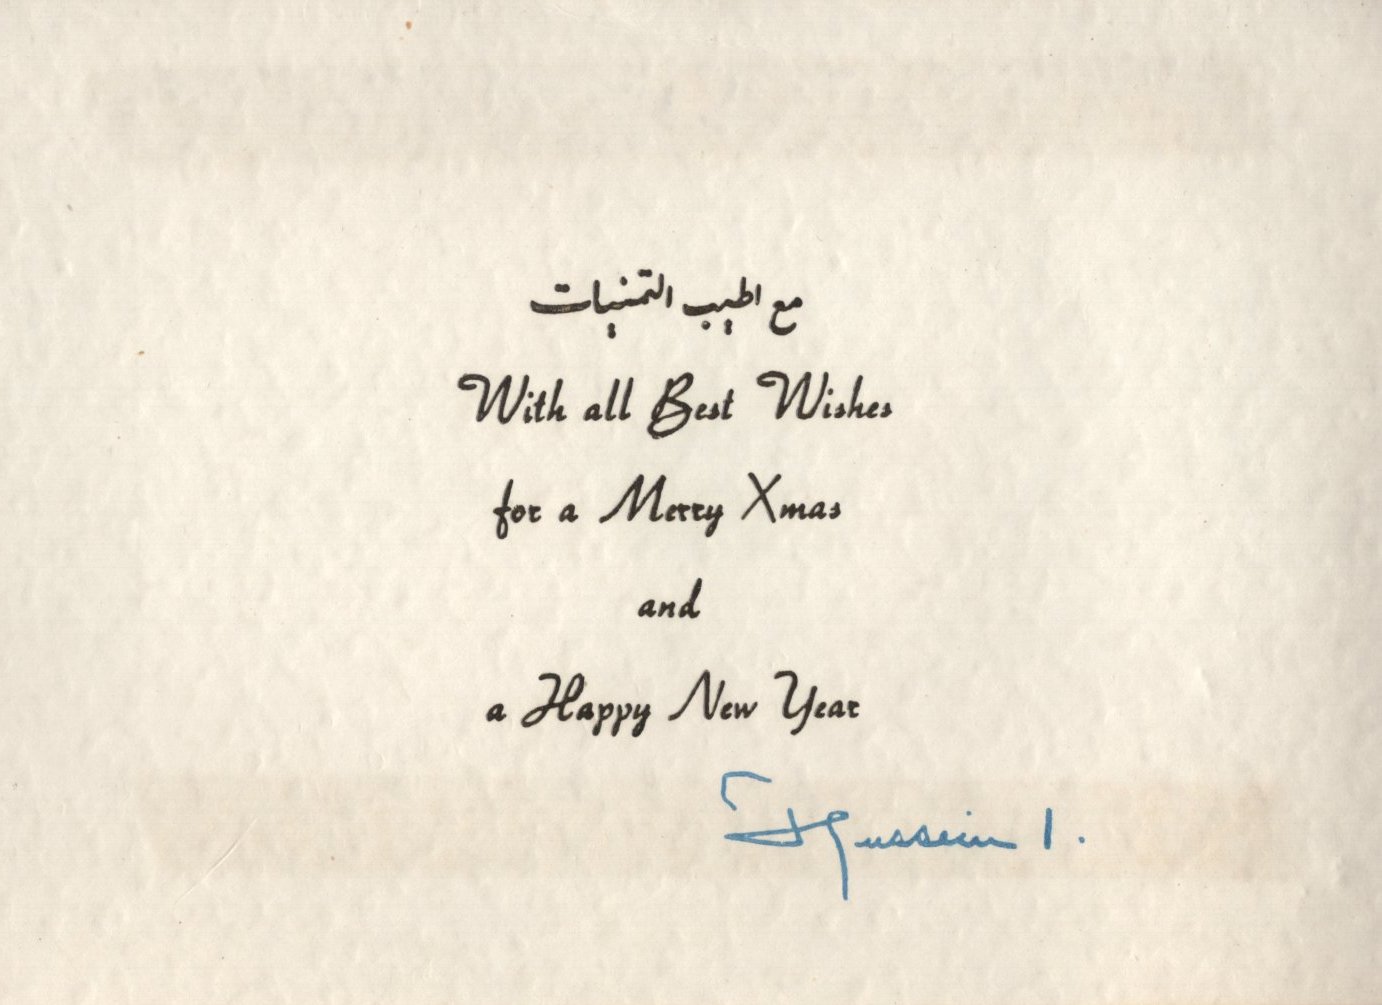 مع اطيب التمنيات
With all Best Wishes
for a Merry Xmas
and
a Happy New Year
Hussein I.